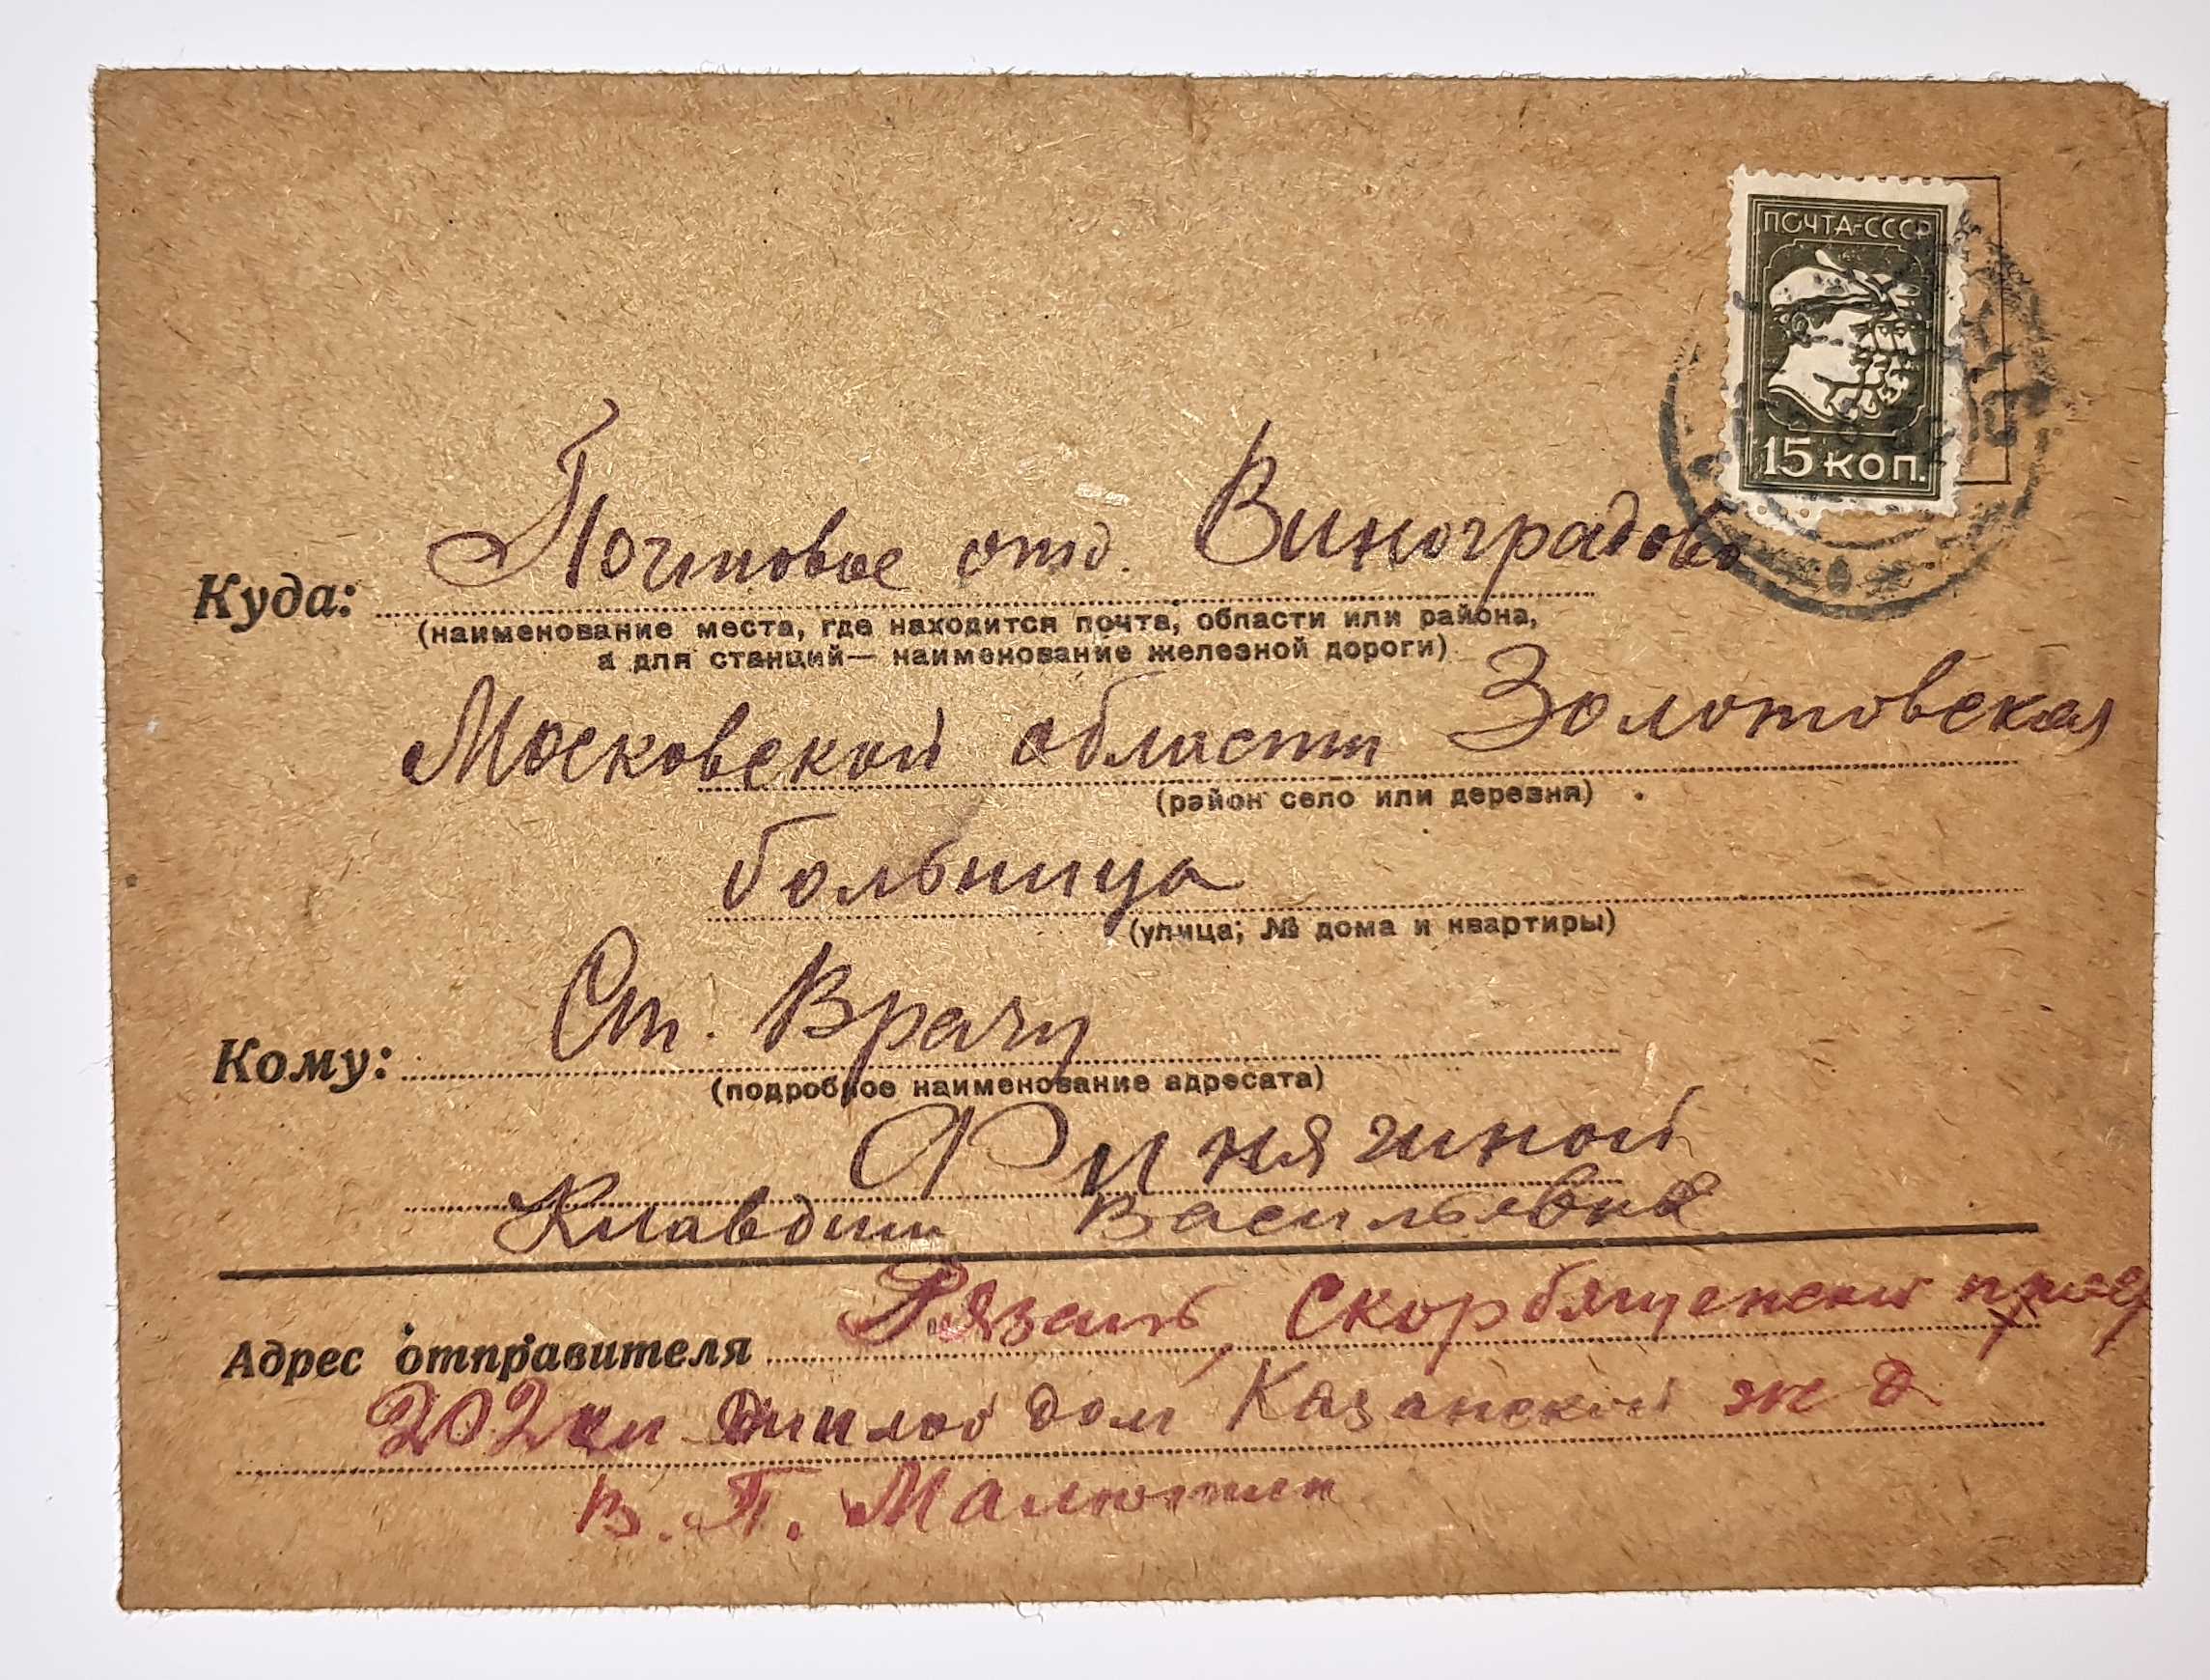 ПОЧТА-СССР
15 КОП.
Почтовое отд. Виноградово
Куда:
(наименование места, где находится почта, области или района,
а для станций— наименование железной дороги)
Московской области Золотовская
(район село или деревня)
больница
(улица; № дома и квартиры)
Ст. Врачу
Кому:
(подробное наименование адресата)
Финягиной
Клавдии Васильевне
Рязань, Скорбященски
Адрес отправителя
дом Казанской ж д
В. Г. Малютин